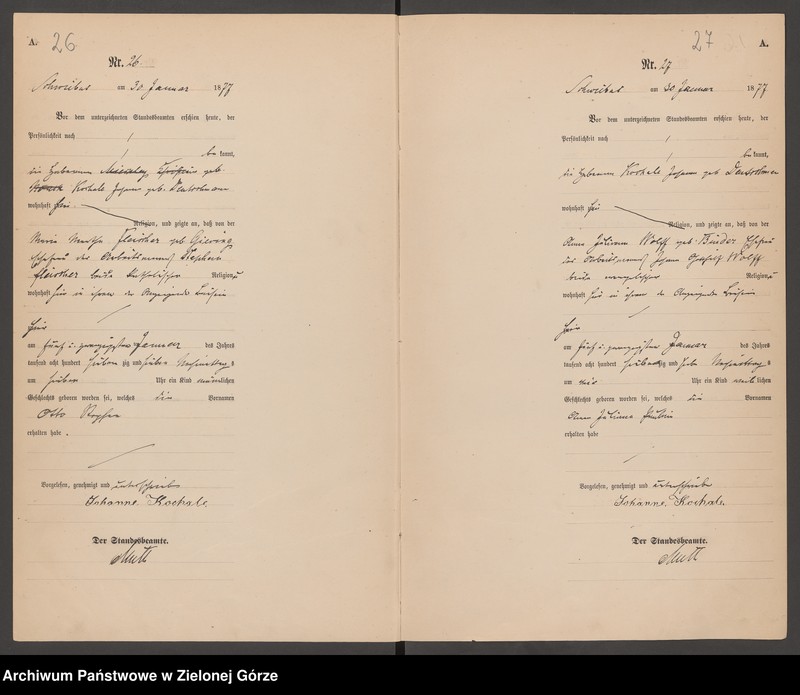 A. 26
Nr. 26.
Schwiebus am 30 Januar 1877
Vor dem unterzeichneten Standesbeamten erschien heute, der
Persönlichkeit nach
bekannt,
die Hebamme geb.
Kochale Johanne geb. Deutschmann
wohnhaft hier
Religion, und zeigte an, daß von der
Marie Martha Fleischer geb.
Ehefrau des Arbeitsmannes Stephan
Fleischer beide katholischer Religion,
wohnhaft hier in ihrem der Anzeigende Beisein
hier
am fünf u. zwanzigsten Januar des Jahres
tausend acht hundert sieben zig und sieben Nachmittags
um sieben Uhr ein Kind männlichen
Geschlechts geboren worden sei, welches die Vornamen
Otto
erhalten habe.
Vorgelesen, genehmigt und unterschrieben
Johanne Kochale.
Der Standesbeamte.
27 A.
Nr. 27
Schwiebus am 30 Januar 1877
Vor dem unterzeichneten Standesbeamten erschien heute, der
Persönlichkeit nach
bekannt,
die Hebamme Kochale Johanne geb. Deutschmann
wohnhaft hier
Religion, und zeigte an, daß von der
Anna Juliane Wolff geb. Binder Ehefrau
des Arbeitsmannes Johann Wolff
beide evangelischer Religion,
wohnhaft hier in ihrem der Anzeigende Beisein
hier
am fünf u. zwanzigsten Januar des Jahres
tausend acht hundert siebenzig und sieben Nachmittags
um Uhr ein Kind weiblichen
Geschlechts geboren worden sei, welches die Vornamen
Anna Juliana Pauline
erhalten habe
Vorgelesen, genehmigt und unterschrieben
Johanne Kochale.
Der Standesbeamte.
Archiwum Państwowe w Zielonej Górze